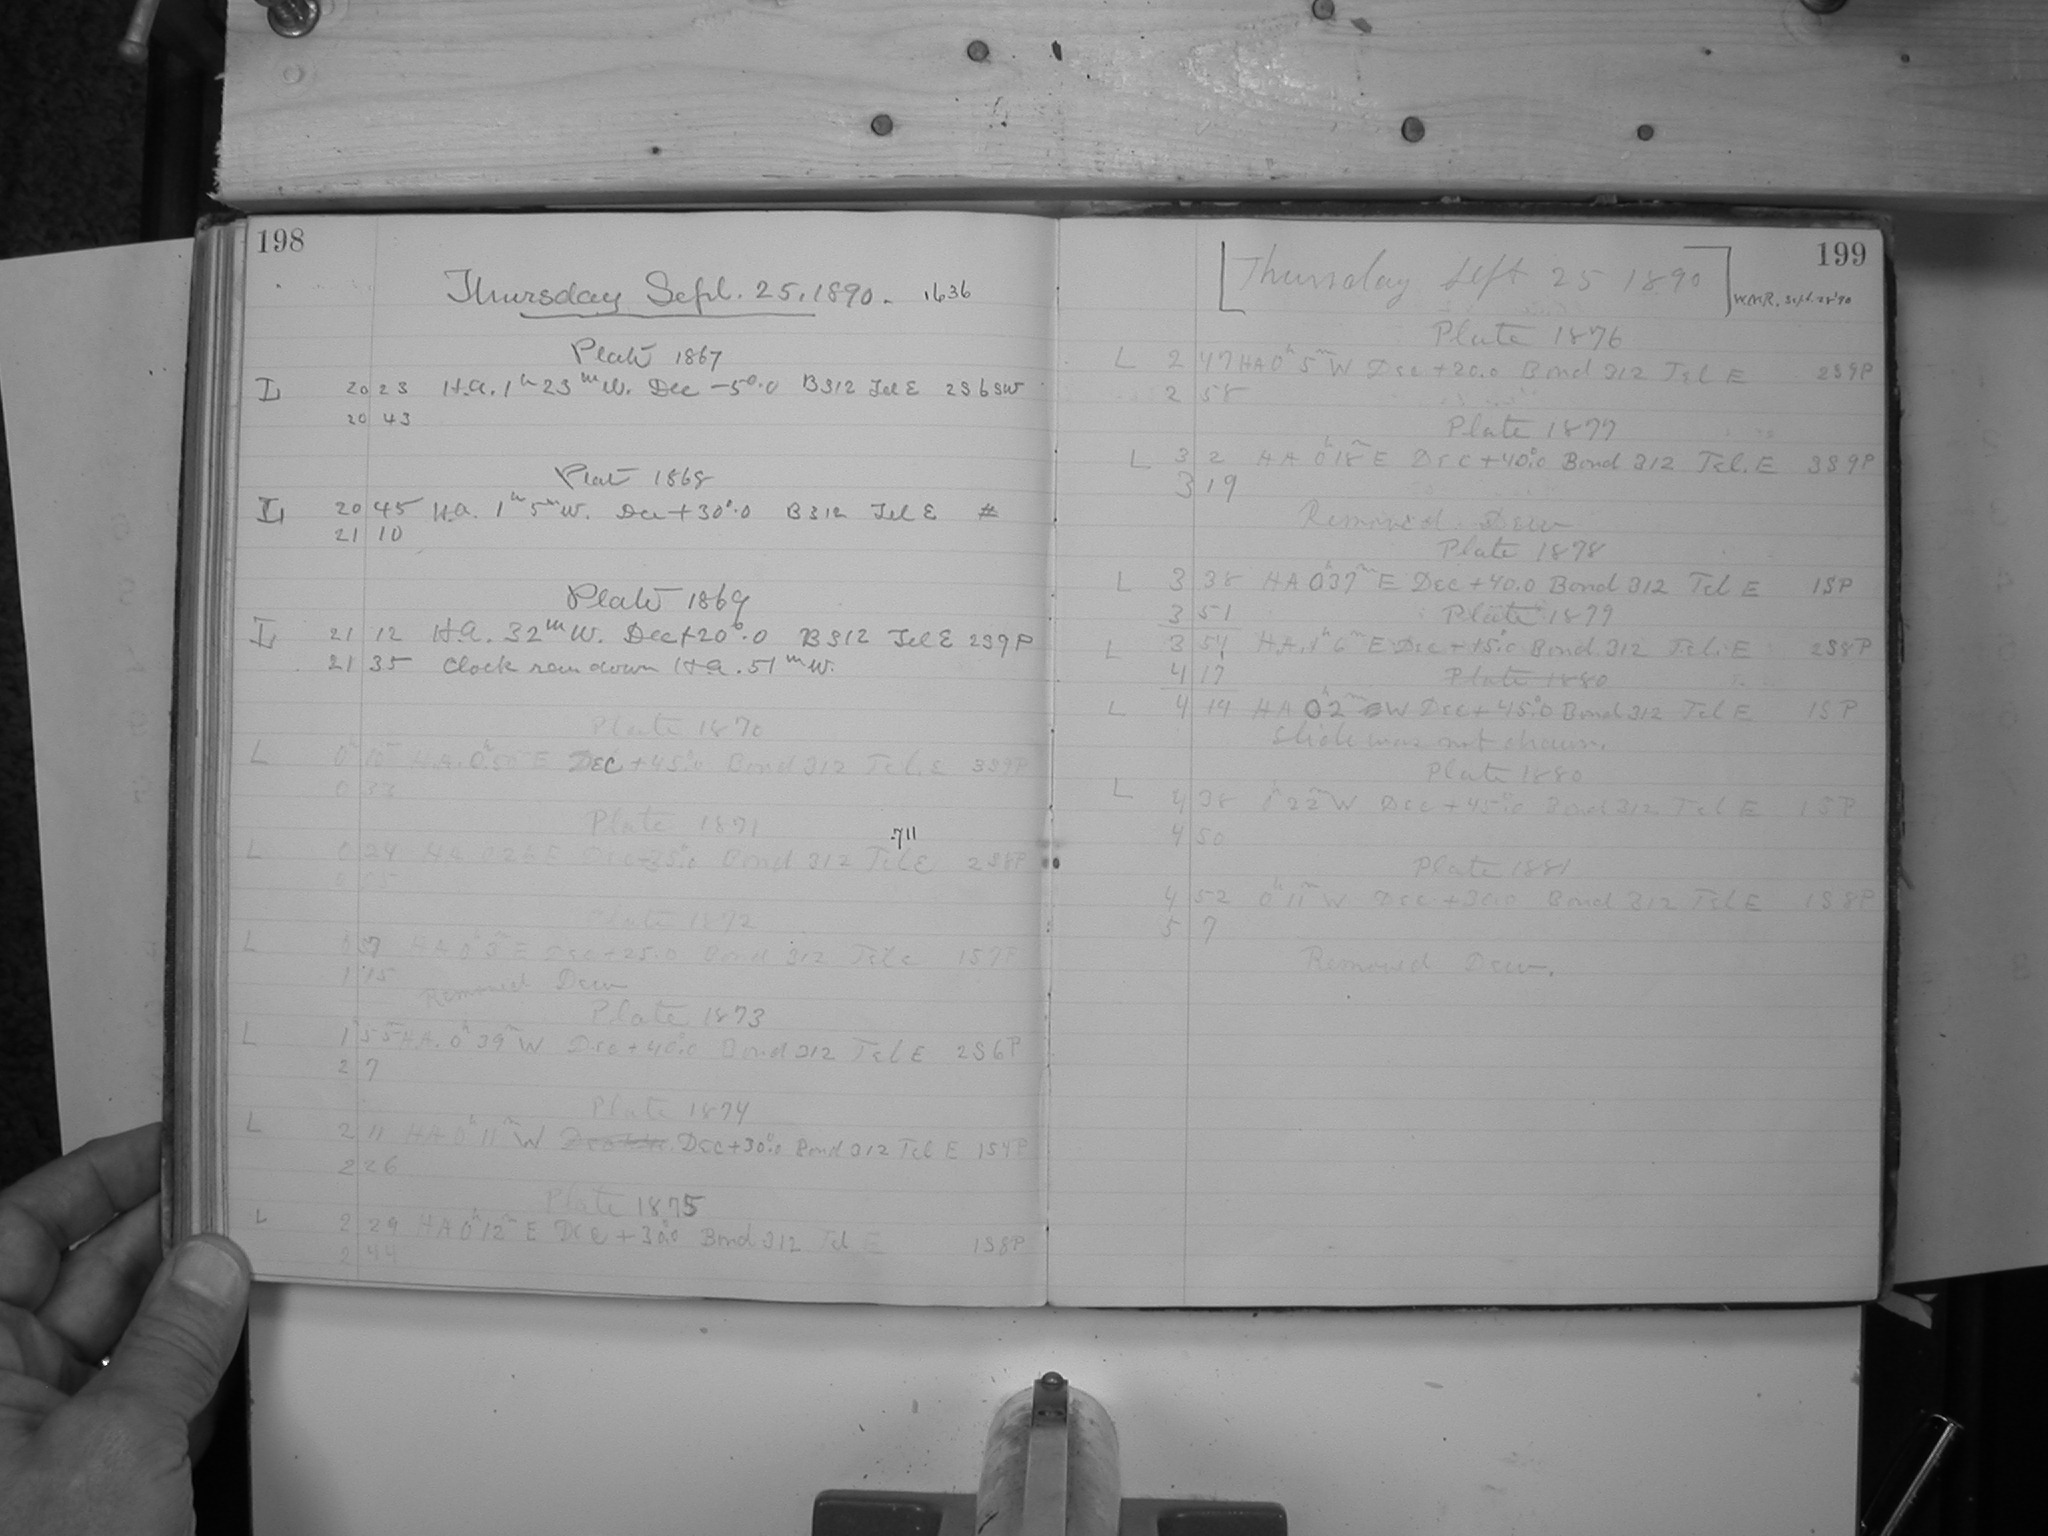 198
Thursday Sept. 25, 1890. 1636
Plate 1867
L 20 23 H.a. 1h 23m W. Dec -5°.0 B312 Tel E 2S6SW
20 43
Plate 1868
L 20 45 H.a. 1h 5m W. Dec +30°.0 B312 Tel E #
21 10
Plate 1869
L 21 12 H.a. 32m W. Dec +20°.0 B312 Tel E 2S9P
21 35 Clock ran down H.a. 51m W.
Plate 1870
L 0h 10m H.A. 0h 50m E Dec +45°.0 Bond 312 Tel. E 3S9P
0 22
Plate 1871
.711
L 0 24 HA 0 26 E Dec +35°.0 Bond 312 Tel E 2S8P
Plate 1872
L 57 HA 0h 3m E Dec +25.0 Bond 312 Tel E 1S7P
1 15
Removed Dew
Plate 1873
L 1 55 HA. 0h 39m W Dec +40°.0 Bond 312 Tel E 2S6P
2 7
Plate 1874
L 2 11 HA 0h 11m W Dec +30°.0 Bond 312 Tel E 1S4P
2 26
Plate 1875
L 2 29 HA 0h 12m E Dec +30°.0 Bond 312 Tel E 1S8P
2 44
199
[Thursday Sept 25 1890] W.M.R. Sept. 28 '90
Plate 1876
L 2 47 HA 0h 5m W Dec +20.0 Bond 312 Tel E 2S9P
2 58
Plate 1877
L 3 2 HA 0h 18m E Dec +40°.0 Bond 312 Tel. E 3S9P
3 19
Removed Dew
Plate 1878
L 3 38 HA 0h 37m E Dec +40.0 Bond 312 Tel E 1SP
3 51 Plate 1879
L 3 54 HA. 1h 6m E Dec +15°.0 Bond 312 Tel. E 2S8P
4 17 Plate 1880
L 4 19 HA 0h 2m W Dec +45°.0 Bond 312 Tel E 1SP
Slide was not drawn.
Plate 1880
L 4 38 0h 22m W Dec +45°.0 Bond 312 Tel E 1SP
4 50
Plate 1881
4 52 0h 11m W Dec +30.0 Bond 312 Tel E 1S8P
5 7
Removed Dew.